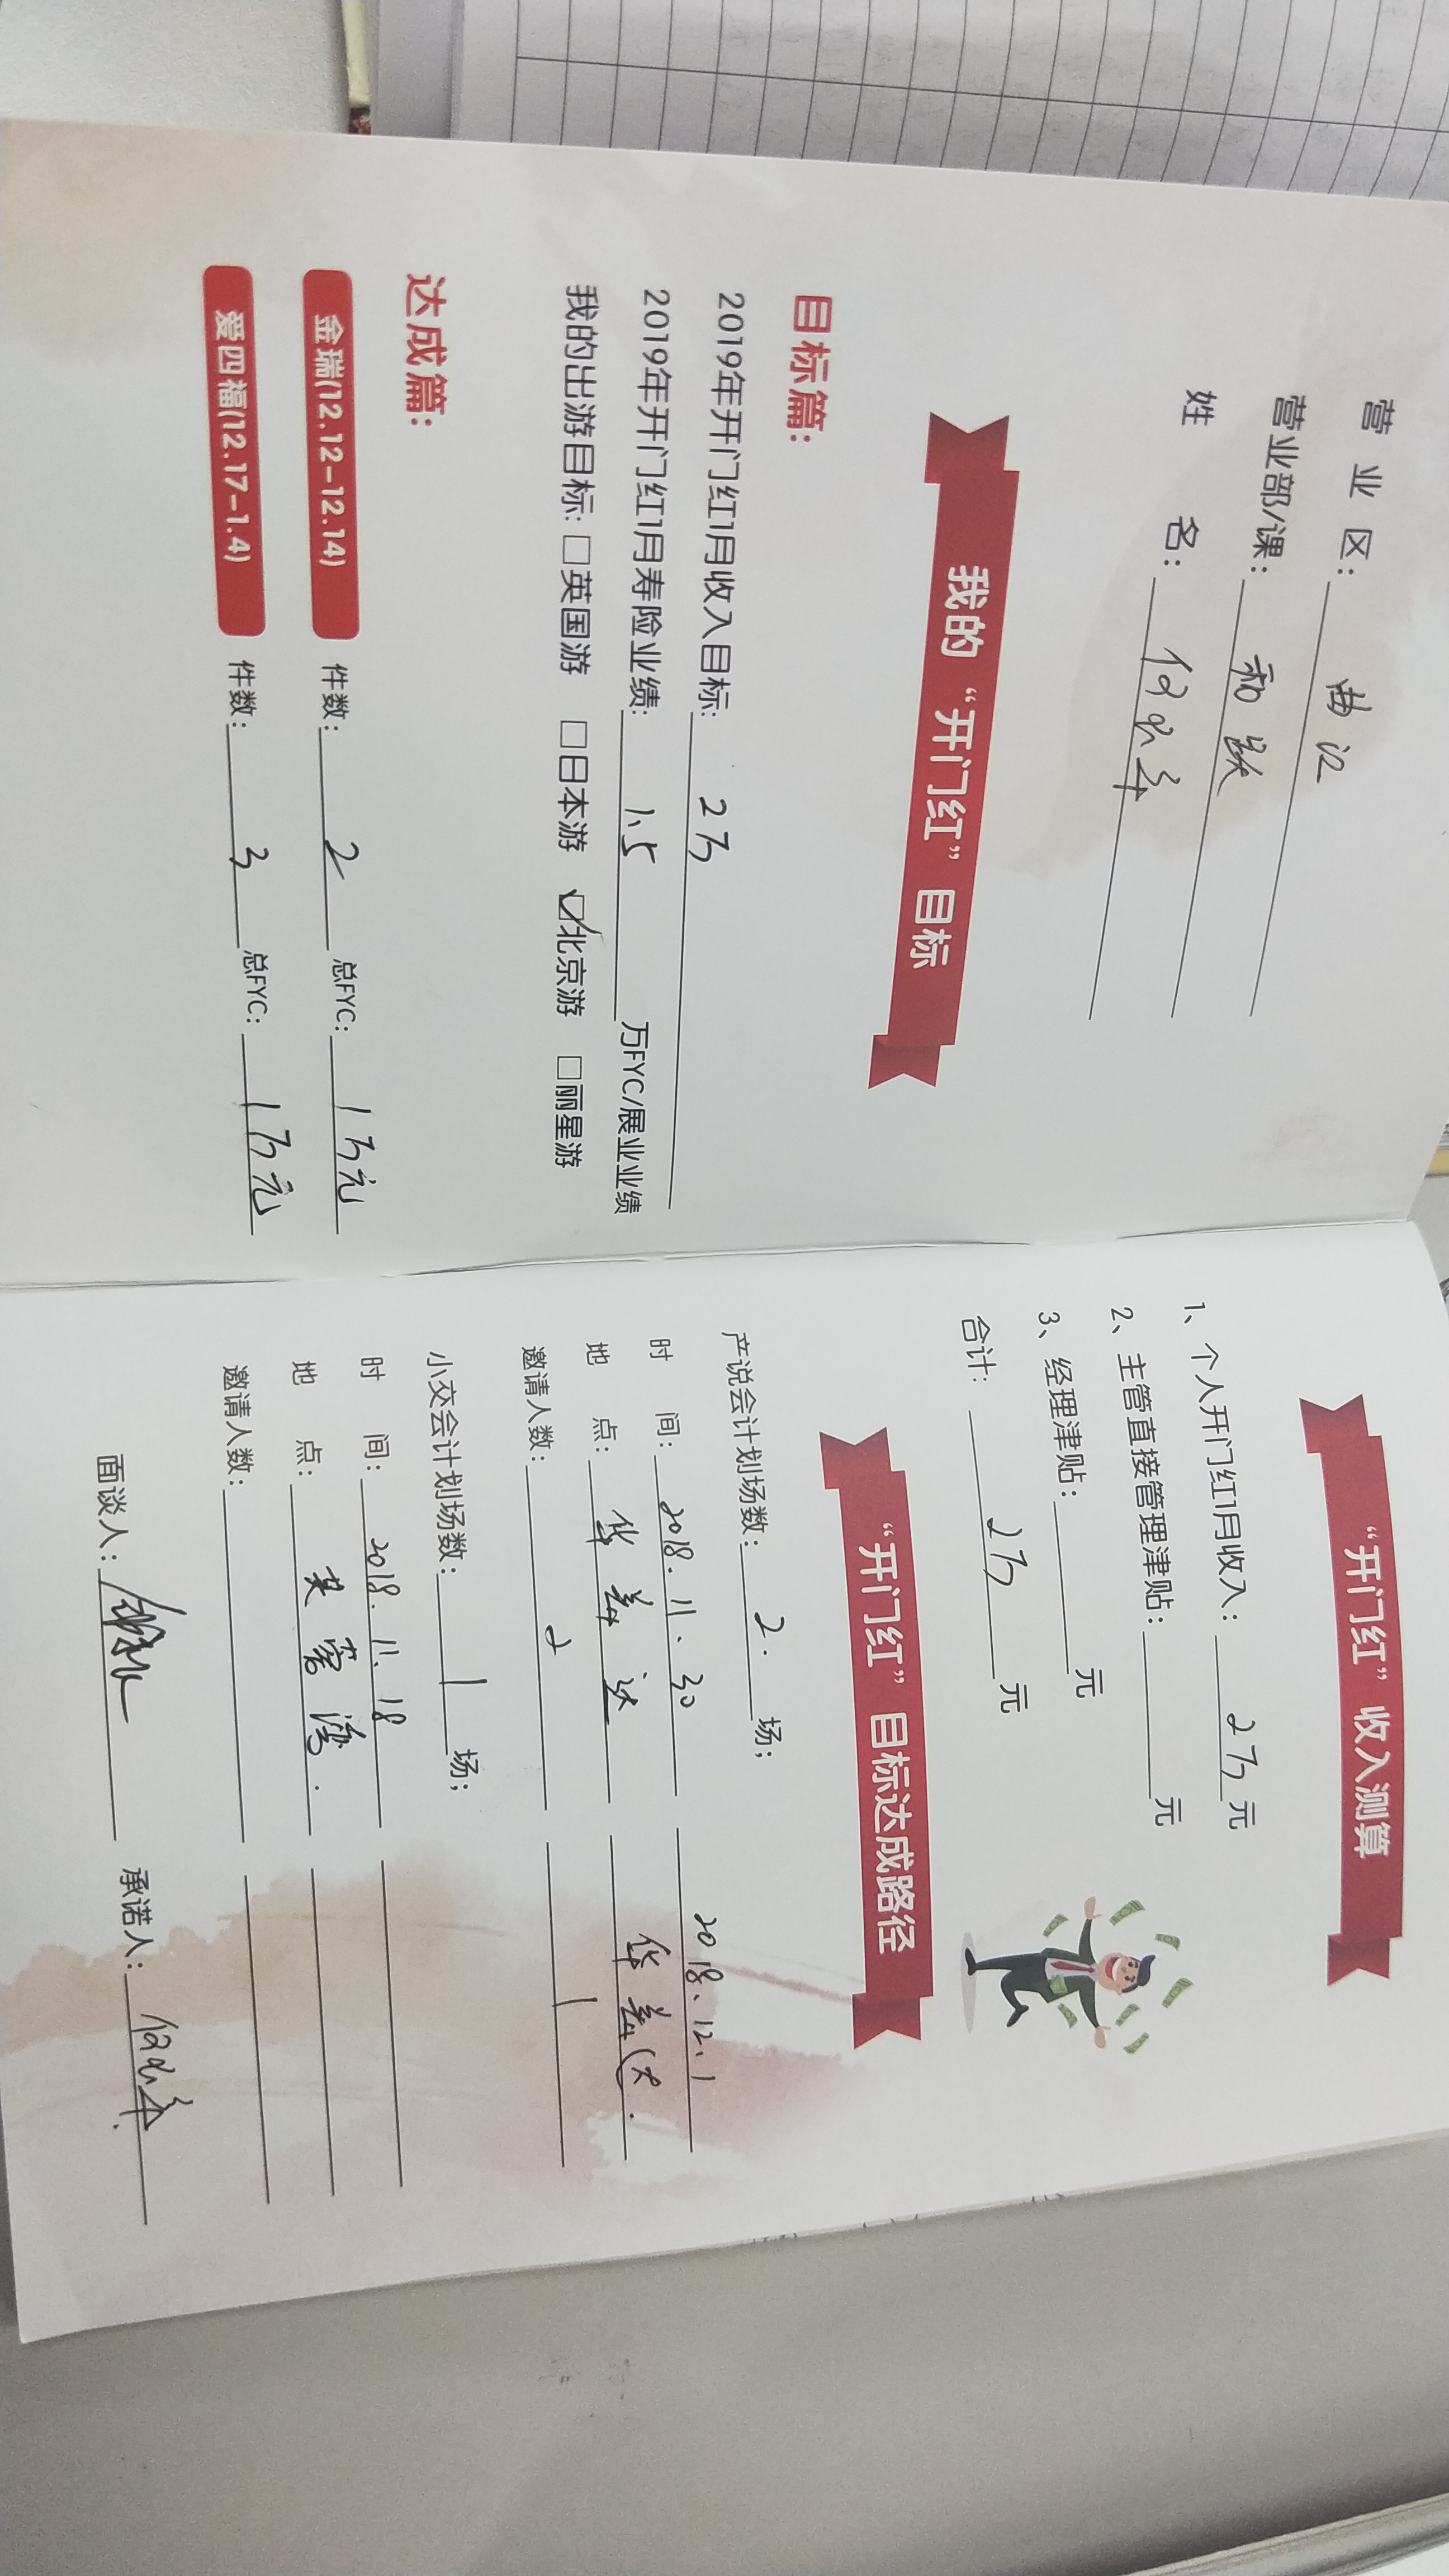 营业区: 曲江
营业部/课: 和跃
姓名:
我的“开门红”目标
目标篇:
2019年开门红1月收入目标: 2万
2019年开门红1月寿险业绩: 1.5 万FYC/展业业绩
我的出游目标: □英国游 □日本游 ☑北京游 □丽星游
达成篇:
金瑞(12.12-12.14) 件数: 2 总FYC: 1万元
爱四福(12.17-1.4) 件数: 3 总FYC: 1万元
“开门红”收入测算
1、个人开门红1月收入: 2万元
2、主管直接管理津贴: 元
3、经理津贴: 元
合计: 2万 元
“开门红”目标达成路径
产说会计划场数: 2. 场;
时间: 2018.11.30 2018.12.1
地点: 华美达 华美达.
邀请人数: 2 1
小交会计划场数: 1 场;
时间: 2018.11.18
地点: 芙蓉湾.
邀请人数:
面谈人: 承诺人: